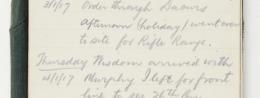 3/1/17 Order through Dacres
afternoon (holiday) I went over
to site for Rifle Range.
Thursday Wisdom arrived with
4/1/17 Murphy I left for front
line to see 26th